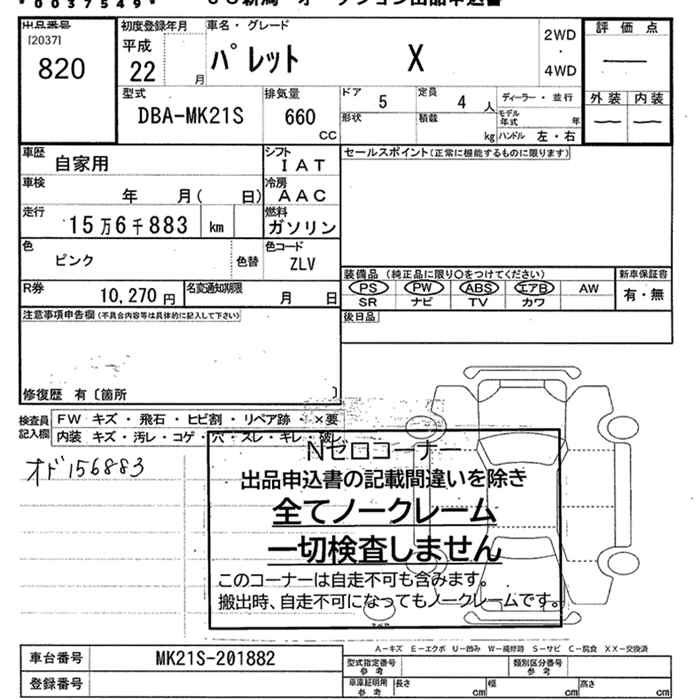 *0037549*
出品番号
[2037]
820
初度登録年月
平成
22
月
車名・グレード
パレット X
2WD
・
4WD
評価点
外装 内装
型式
DBA-MK21S
排気量
660
CC
ドア
5
定員
4 人
ディーラー・並行
形状
積載
kg
モデル年式
年
ハンドル 左・右
車歴
自家用
シフト
IAT
車検
年 月( 日)
冷房
AAC
走行
15万6千883 km
燃料
ガソリン
色
ピンク
色替
色コード
ZLV
R券
10,270円
名変通知期限
月 日
セールスポイント(正常に機能するものに限ります)
装備品(純正品に限り○をつけてください)
新車保証書
PS PW ABS エアB AW
SR ナビ TV カワ
有・無
後日品
注意事項申告欄(不具合内容等は具体的に記入して下さい)
修復歴 有〔箇所 〕
検査員
記入欄
FW キズ・飛石・ヒビ割・リペア跡・×要
内装 キズ・汚レ・コゲ・穴・スレ・キレ・破レ
オド156883
Nゼロコーナー
出品申込書の記載間違いを除き
全てノークレーム
一切検査しません
このコーナーは自走不可も含みます。
搬出時、自走不可になってもノークレームです。
A-キズ E-エクボ U-凹み W-補修跡 S-サビ C-腐食 XX-交換済
車台番号
MK21S-201882
登録番号
型式指定番号
参考
類別区分番号
参考
車庫証明用
参考
長さ cm
幅 cm
高さ cm